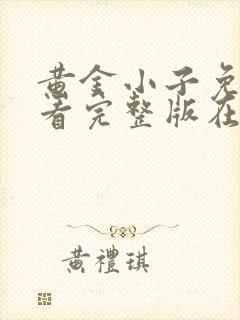 黄金小子免
看完整版在
黄禮琪